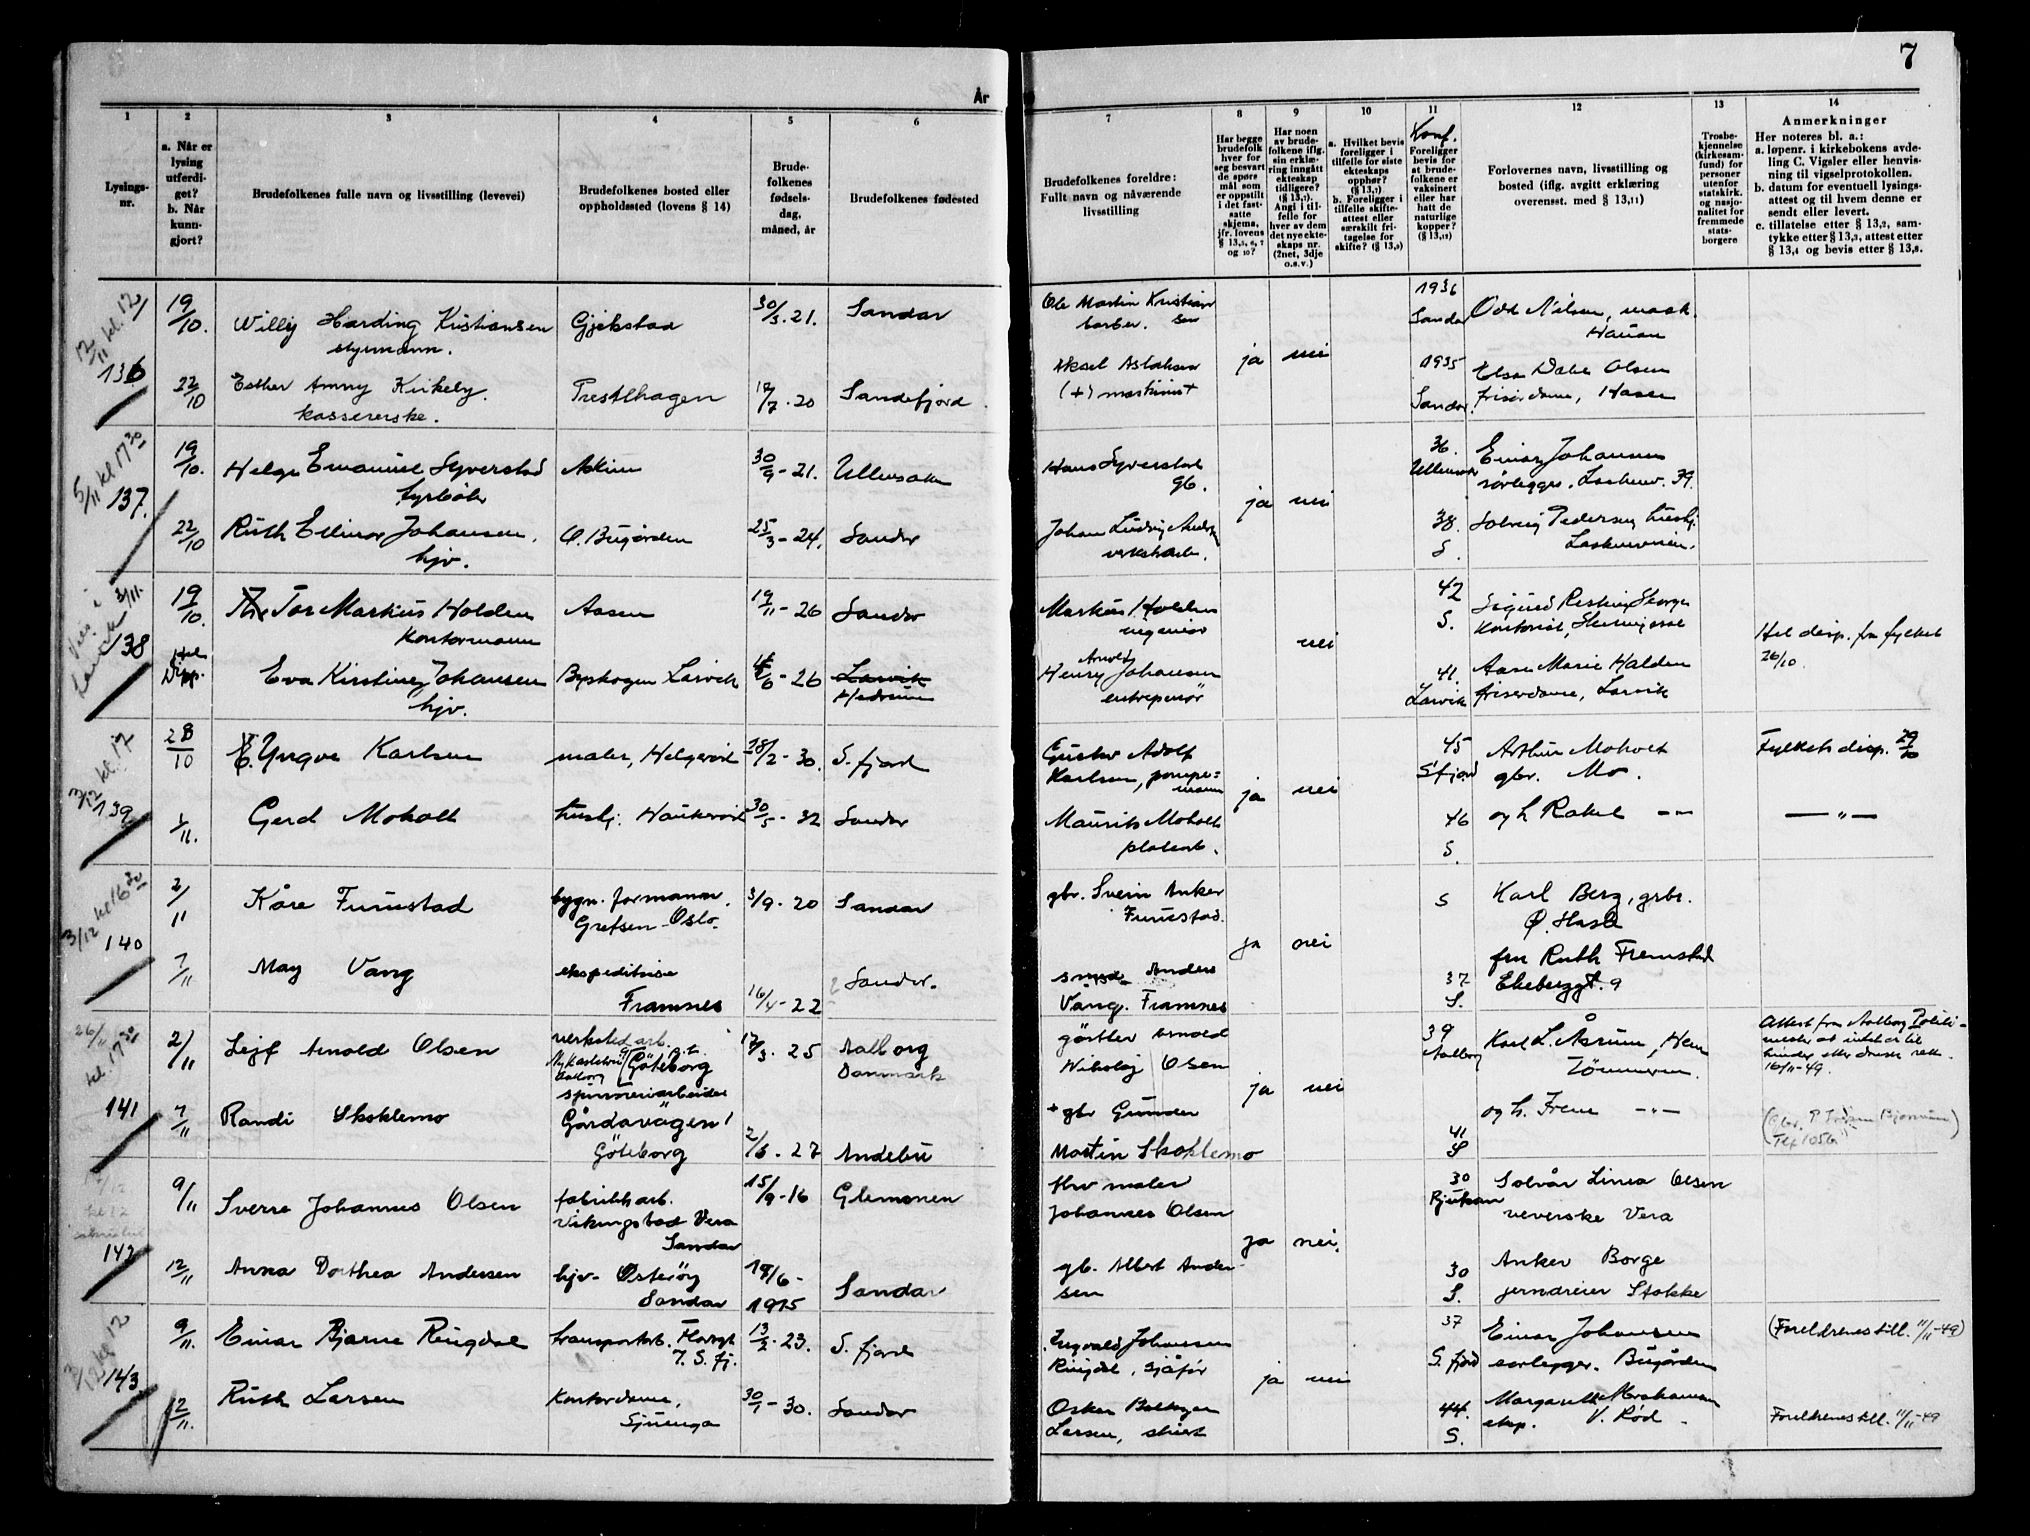 7
År
1 2 3 4 5 6 7 8 9 10 11 12 13 14
Lysings-
nr.
a. Når er
lysing
utferdi-
get?
b. Når
kunn-
gjort?
Brudefolkenes fulle navn og livsstilling (levevei)
Brudefolkenes bosted eller
oppholdssted (lovens § 14)
Brude-
folkenes
fødsels-
dag,
måned, år
Brudefolkenes fødested
Brudefolkenes foreldre:
Fullt navn og nåværende
livsstilling
Har begge
brudefolk
hver for
seg besvart
de spørs
mål som
er oppstilt
i det fast-
satte
skjema,
jfr. lovens
§ 13,5, 6, 7
og 10?
Har noen
av brude-
folkene iflg.
sin erklæ-
ring inngått
ekteskap
tidligere?
(§ 13,7).
Angi i til-
felle for
hver av dem
det nye ekte-
skaps nr.
(2net, 3dje
o.s.v.)
a. Hvilket bevis
foreligger i
tilfelle for siste
ekteskaps
opphør?
(§ 13,7)
b. Foreligger i
tilfelle skifte-
attest eller
særskilt fri-
tagelse for
skifte? (§ 13,9)
Konf.
Foreligger
bevis for
at brude-
folkene er
vaksinert
eller har
hatt de
naturlige
kopper?
(§ 13,12)
Forlovernes navn, livsstilling og
bosted (iflg. avgitt erklæring
overensst. med § 13,11)
Trosbe-
kjennelse
(kirkesam-
fund) for
personer
utenfor
statskirk.
og nasjo-
nalitet for
fremmede
stats-
borgere
Anmerkninger
Her noteres bl. a.:
a. løpenr. i kirkebokens avde-
ling C. Vigsler eller henvis-
ning til vigselprotokollen.
b. datum for eventuell lysings-
attest og til hvem denne er
sendt eller levert.
c. tillatelse etter § 13,2, sam-
tykke etter § 13,3, attest etter
§ 13,4 og bevis etter § 13,8.
12/11 kl. 12
136
19/10. Willy Harding Kristiansen Gjekstad 30/3. 21. Sandar
styrmann.
Ole Martin Kristian
sen
barber.
1936
Sandar
Odd Nilsen, mask.
Hauan
ja nei
22/10 Esther Amny Kirkeby Prestlhagen 17/7. 20 Sandefjord.
kassererske.
Aksel
(+) maskinist
1935
Sandar.
Elsa Olsen
frisørdame, Hasen
5/11 kl 17 30
137.
19/10. Helge Emanuel Syverstad Askim 30/9 - 21. Ullensaker
Hans Syverstad
gb.
36.
Ullensaker
Einar Johansen
rørlegger.
ja nei
22/10 Ruth Ellinor Johansen, Ø. Bugården 25/3 - 24. Sandar
hjv.
Johan Ludvig
38.
S.
Solveig Pedersen
Vies i
Larvik 3/11.
138
19/10. Tor Markus Holden Aasen 19/11 - 26 Sandar
Kontormann
Markus Holden
ingeniør
42
S.
Sigurd
Kontorist,
nei
Hel disp. fra fylket
26/10.
Hel
Disp.
Eva Kirstine Johansen Byskogen Larvik /6 - 26 Larvik
Hedrum
hjv.
Arnold
Henry Johansen
entrepenør
41.
Larvik
Aase Marie Halden
frisørdame, Larvik
3/12 kl. 17
139
28/10 Yngve Karlsen maler, Helgerød 28/2 - 30. S. fjord
Gustav Adolf
Karlsen, pumpe=
mann
45
S'fjord
Arthur Moholt
gbr. Mo.
Fylkets disp. 29/10
ja nei
1/11. Gerd Moholt hush. Haukerød 30/5 - 32 Sandar
Maurits Moholt
platearb.
46
S.
og h. Rakel — " —
— " —
3/12 kl 16 30
140
2/11 Kåre Furustad bygn. formann. 3/9 - 20 Sandar
Grefsen - Oslo.
gbr. Svein Anker
Furustad.
S
Karl Berg, grbr.
Ø. Hasle
ja nei
7/11 May Vang ekspeditrise
Framnes 16/4 - 22 Sandar.
smed Anders
Vang. Framnes
37
S.
fru Ruth Fremstad
Ekebergt. 9
26/11
kl. 17 30
141
2/11 Leif Arnold Olsen verksted arb. 17/3. 25 Aalborg
Göteborg Danmark
gørtler Arnold
Nikolaj Olsen
39
Aalborg
Karl L. Åsrum, Hem
Tönnesen.
Attest fra Aalborg Politi-
mester at intet er til
hinder etter dansk rett.
16/11-49.
ja nei
spinneriarbeider
7/11 Randi Skoklemo Gårdavägen 1
Göteborg 2/6. 27 Andebu
+ gbr Gunder
Martin Skoklemo
41
S
og h. Frene — " —
(Gbr. P. Bjørnum)
(Tlf 1056)
142
9/11 Sverre Johannes Olsen fabrikkarb. 15/9 - 16 Glemmen
Vikingstad Vera
Sandar
fhv maler
Johannes Olsen
30
Rjukan
Solvår Linea Olsen
veverske Vera
ja nei.
12/11 Anna Dorthea Andersen hjv- Østerøy 19/6 -
Sandar 1915 Sandar
gb. Albert Ander-
sen
30
S.
Anker Borge
jerndreier Stokke
3/12 kl 12
143
9/11. Einar Bjarne Ringdal transportarb. 13/2 - 23. S. fjord
7. S. fj.
Ingvald Johansen
Ringdal, sjåfør
37
S. fjord
Einar Johansen
rørlegger. Bugården
(Foreldrenes till. 11/11-49)
ja nei
12/11. Ruth Larsen Kontordame, 30/1 - 30. Sandar
Sjuenga
Oskar
Larsen, skiert
44.
S.
Margareth Abrahamsen
eksp. V. Rød -
Foreldrenes till. 11/11-49